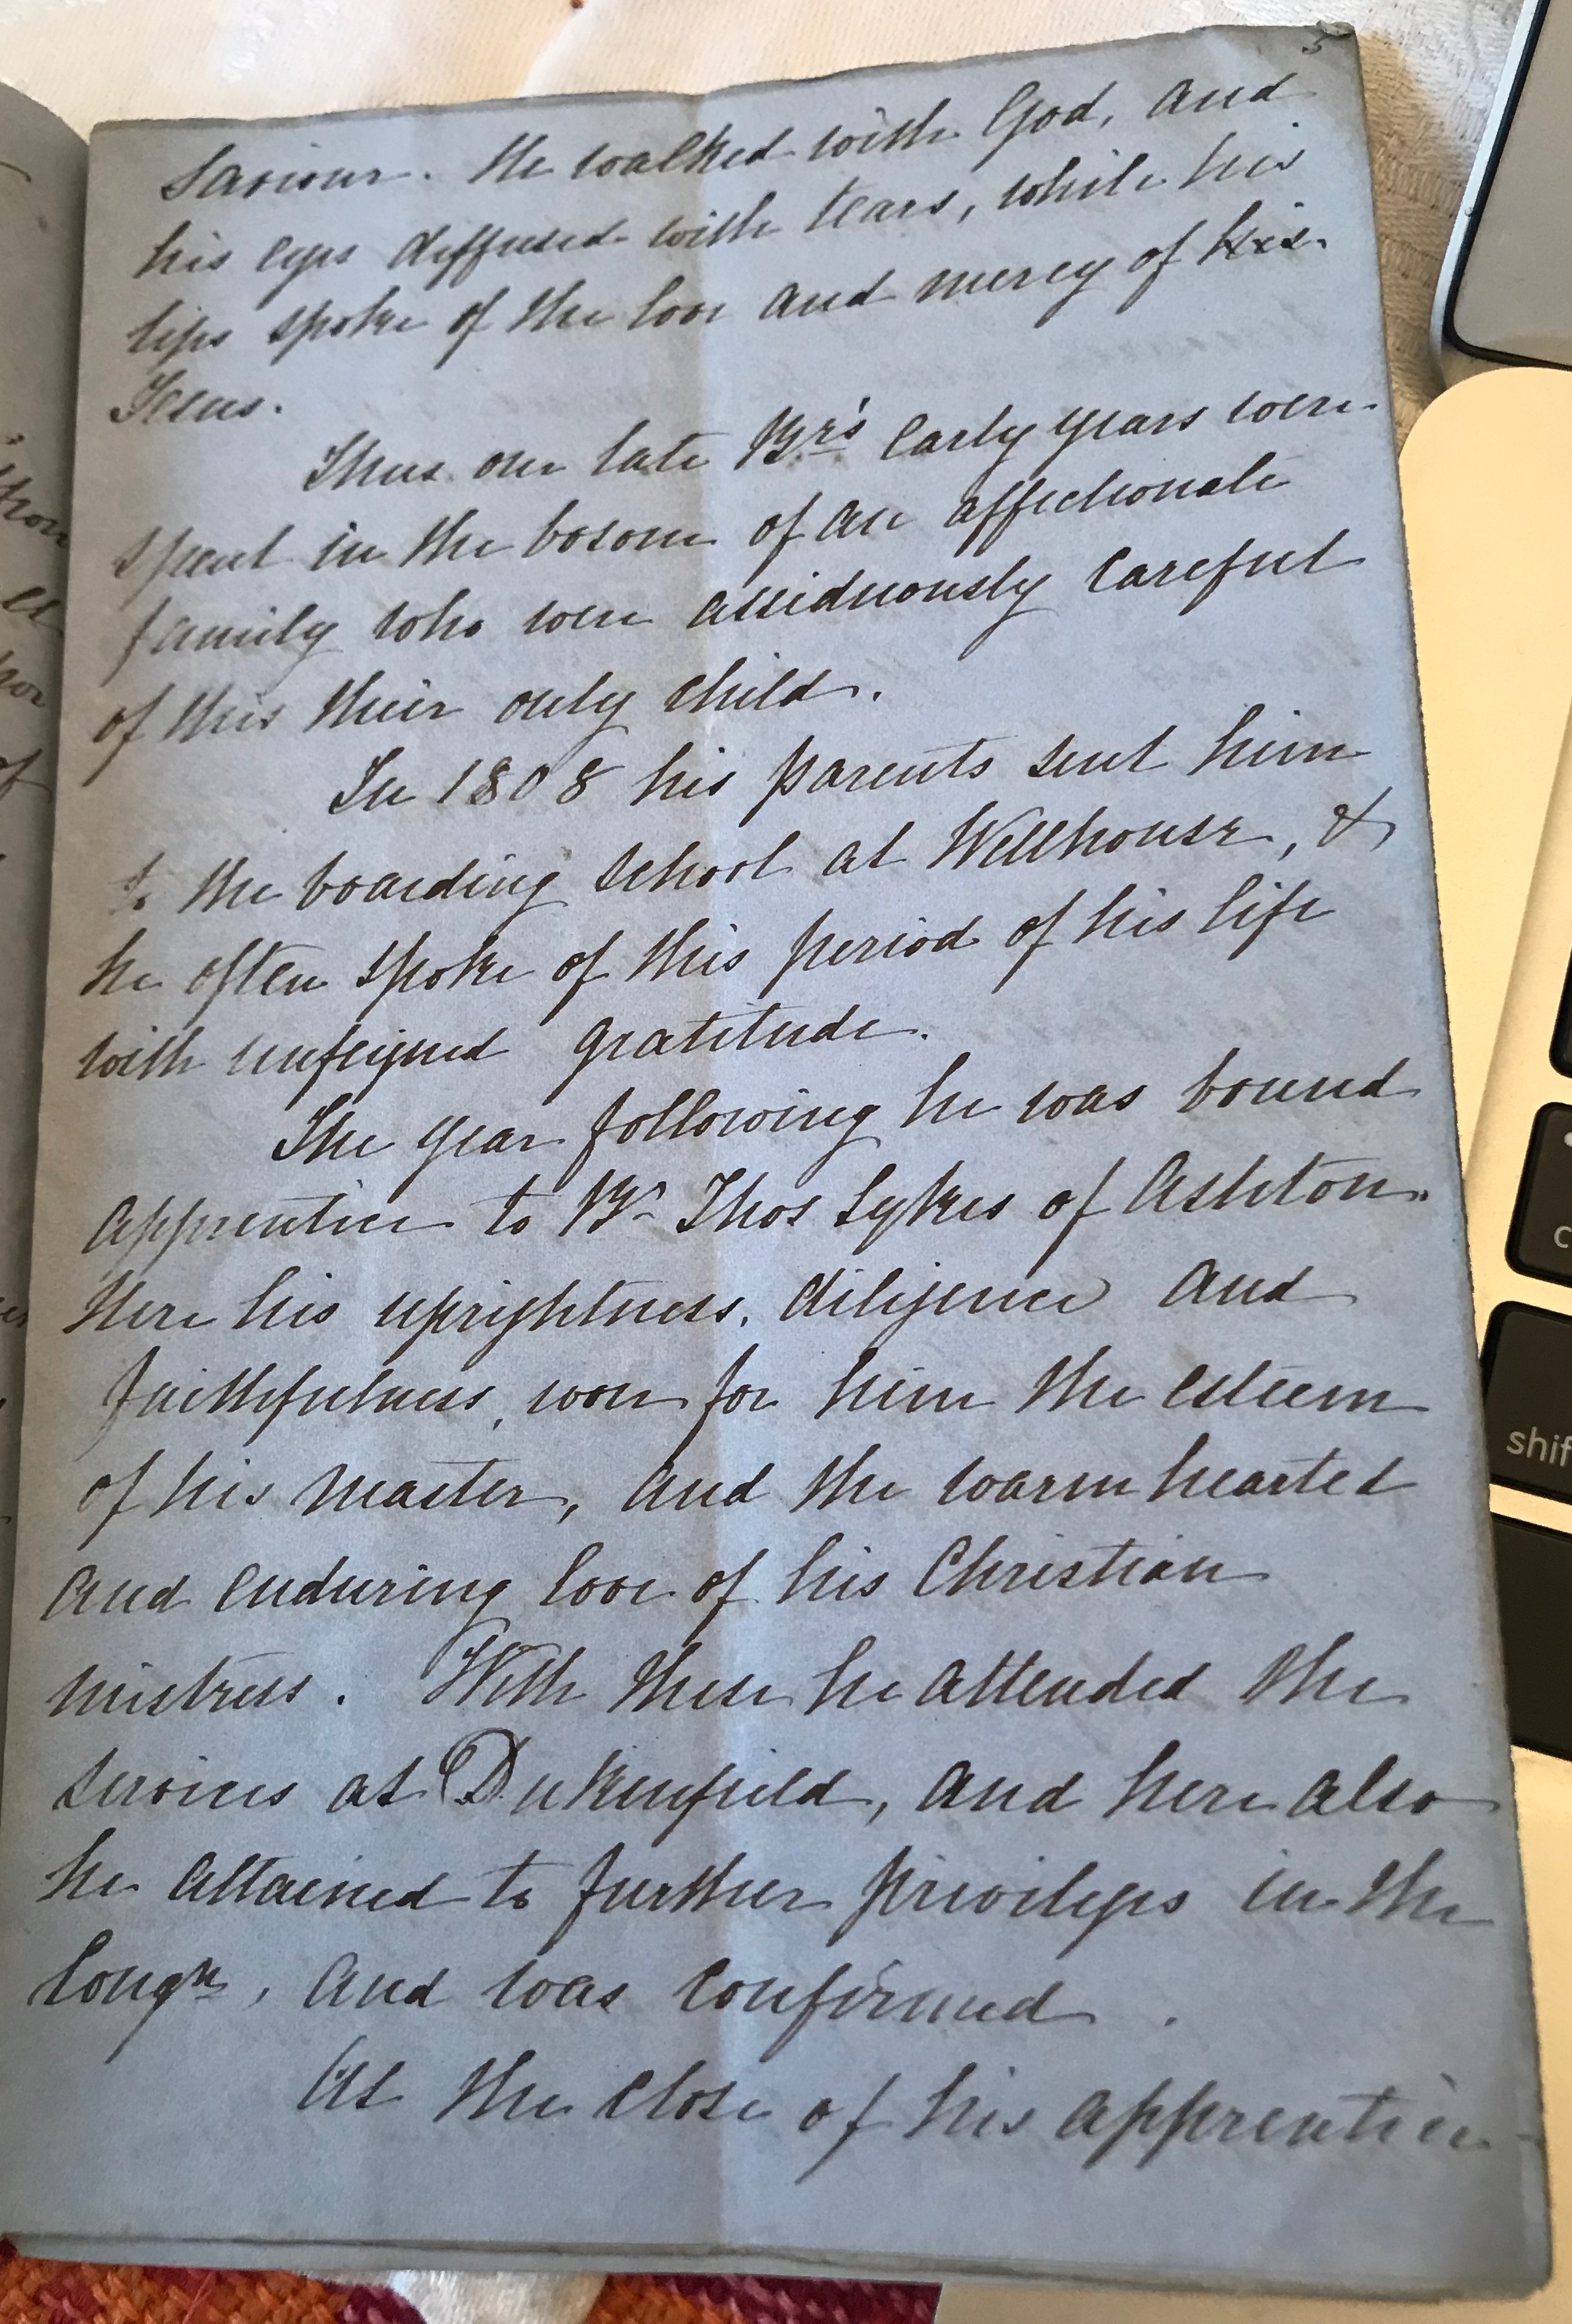 5
Saviour. He walked with God, and
his eyes diffused with tears, while his
lips spoke of the love and mercy of his
Jesus.
Thus our late Br's early years were
spent in the bosom of an affectionate
family who were assiduously careful
of this their only child.
In 1808 his parents sent him
to the boarding school at Wellhouse, &
he often spoke of this period of his life
with unfeigned gratitude.
The year following he was bound
apprentice to Br Thos Sykes of Ashton.
Here his uprightness, diligence and
faithfulness, won for him the esteem
of his master, and the warm hearted
and enduring love of his Christian
mistress. With these he attended the
services at Dukinfield, and here also
he attained to further privileges in the
Congn, and was confirmed.
At the close of his apprentice-
shif
c